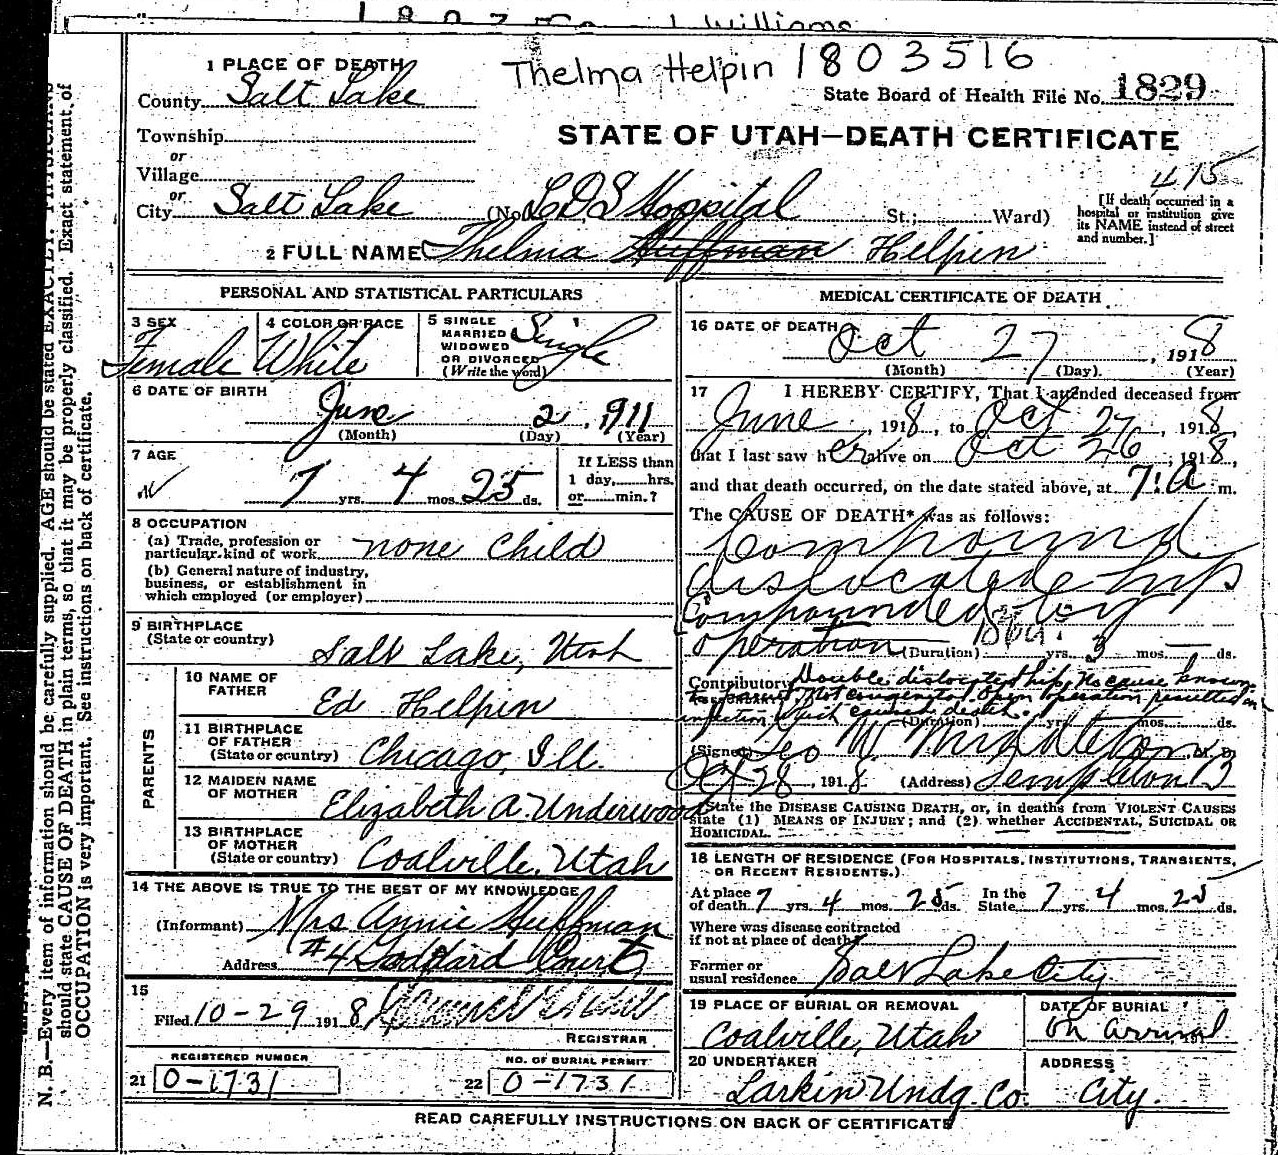 Thelma Helpin 1803516
State Board of Health File No. 1829
STATE OF UTAH—DEATH CERTIFICATE
1 PLACE OF DEATH
County Salt Lake
Township
or
Village
or
City Salt Lake (No. LDS Hospital St.; Ward)
415
[If death occurred in a
hospital or institution give
its NAME instead of street
and number.]
2 FULL NAME Thelma Huffman Helpin
PERSONAL AND STATISTICAL PARTICULARS
3 SEX
Female
4 COLOR OR RACE
White
5 SINGLE
MARRIED
WIDOWED
OR DIVORCED
(Write the word)
Single
6 DATE OF BIRTH
June 2, 1911
(Month) (Day) (Year)
7 AGE
7 yrs. 4 mos. 25 ds.
If LESS than
1 day, hrs.
or min.?
8 OCCUPATION
(a) Trade, profession or
particular kind of work none Child
(b) General nature of industry,
business, or establishment in
which employed (or employer)
9 BIRTHPLACE
(State or country)
Salt Lake, Utah
PARENTS
10 NAME OF
FATHER
Ed Helpin
11 BIRTHPLACE
OF FATHER
(State or country) Chicago, Ill.
12 MAIDEN NAME
OF MOTHER
Elizabeth A. Underwood
13 BIRTHPLACE
OF MOTHER
(State or country) Coalville, Utah
14 THE ABOVE IS TRUE TO THE BEST OF MY KNOWLEDGE
(Informant) Mrs Annie Huffman
Address #4 Goddard Court
15
Filed 10-29 1918
REGISTRAR
REGISTERED NUMBER
21 0-1731
NO. OF BURIAL PERMIT
22 0-1731
MEDICAL CERTIFICATE OF DEATH
16 DATE OF DEATH
Oct 27, 1918
(Month) (Day) (Year)
17 I HEREBY CERTIFY, That I attended deceased from
June, 1918, to Oct 27, 1918
that I last saw her alive on Oct 26, 1918,
and that death occurred, on the date stated above, at 7:a m.
The CAUSE OF DEATH* was as follows:
Compound
dislocated hip
Compounded by
operation
(Duration) yrs. 3 mos. ds.
Contributory Double dislocated hip, No cause known
to parent Not congenital. Open operation resulted in
infection which caused death.
(Duration) yrs. mos. ds.
(Signed) Geo W. Middleton M. D.
Oct 28, 1918 (Address) Templeton B
*State the DISEASE CAUSING DEATH, or, in deaths from VIOLENT CAUSES
state (1) MEANS OF INJURY; and (2) whether ACCIDENTAL, SUICIDAL OR
HOMICIDAL.
18 LENGTH OF RESIDENCE (FOR HOSPITALS, INSTITUTIONS, TRANSIENTS,
OR RECENT RESIDENTS.)
At place
of death 7 yrs. 4 mos. 25 ds.
In the
State 7 yrs. 4 mos. 25 ds.
Where was disease contracted
if not at place of death?
Former or
usual residence Salt Lake City
19 PLACE OF BURIAL OR REMOVAL
Coalville, Utah
DATE OF BURIAL
on arrival
20 UNDERTAKER
Larkin Undg. Co.
ADDRESS
City.
READ CAREFULLY INSTRUCTIONS ON BACK OF CERTIFICATE
N. B.—Every item of information should be carefully supplied. AGE should be stated EXACTLY. PHYSICIANS
should state CAUSE OF DEATH in plain terms, so that it may be properly classified. Exact statement of
OCCUPATION is very important. See instructions on back of certificate.